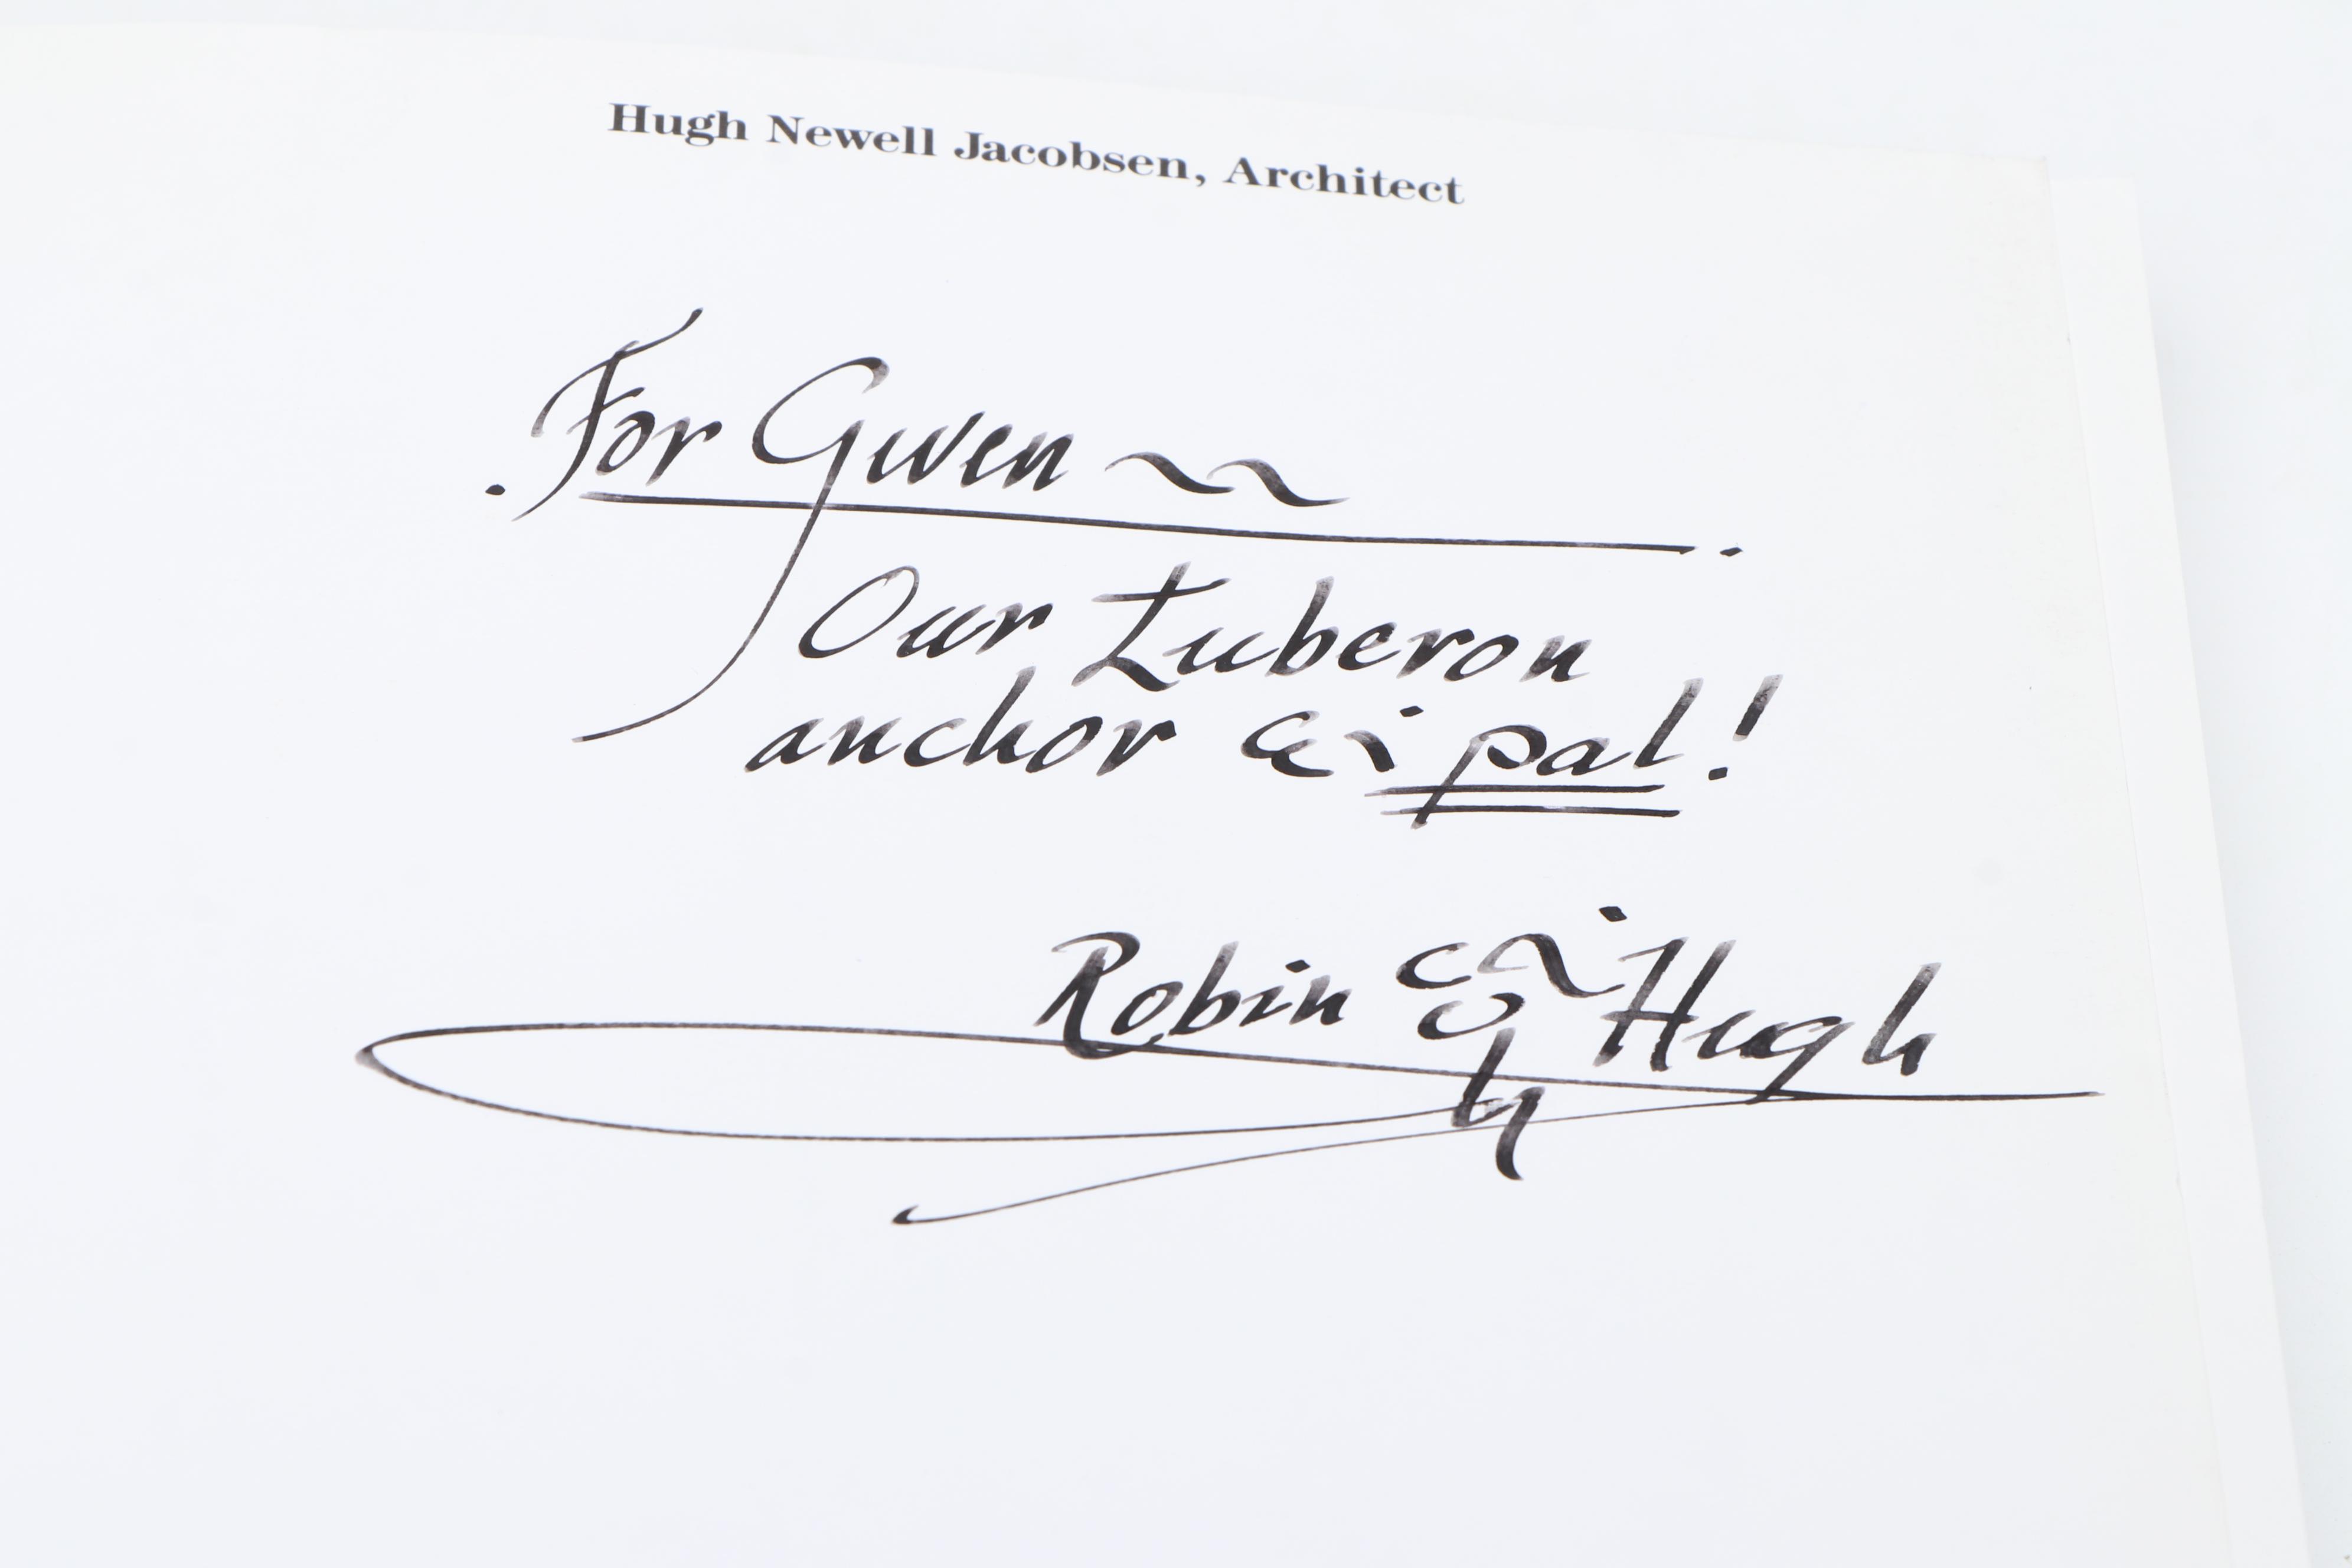 Hugh Newell Jacobsen, Architect
For Gwen ~~
Our Luberon
anchor & pal!
Robin & Hugh